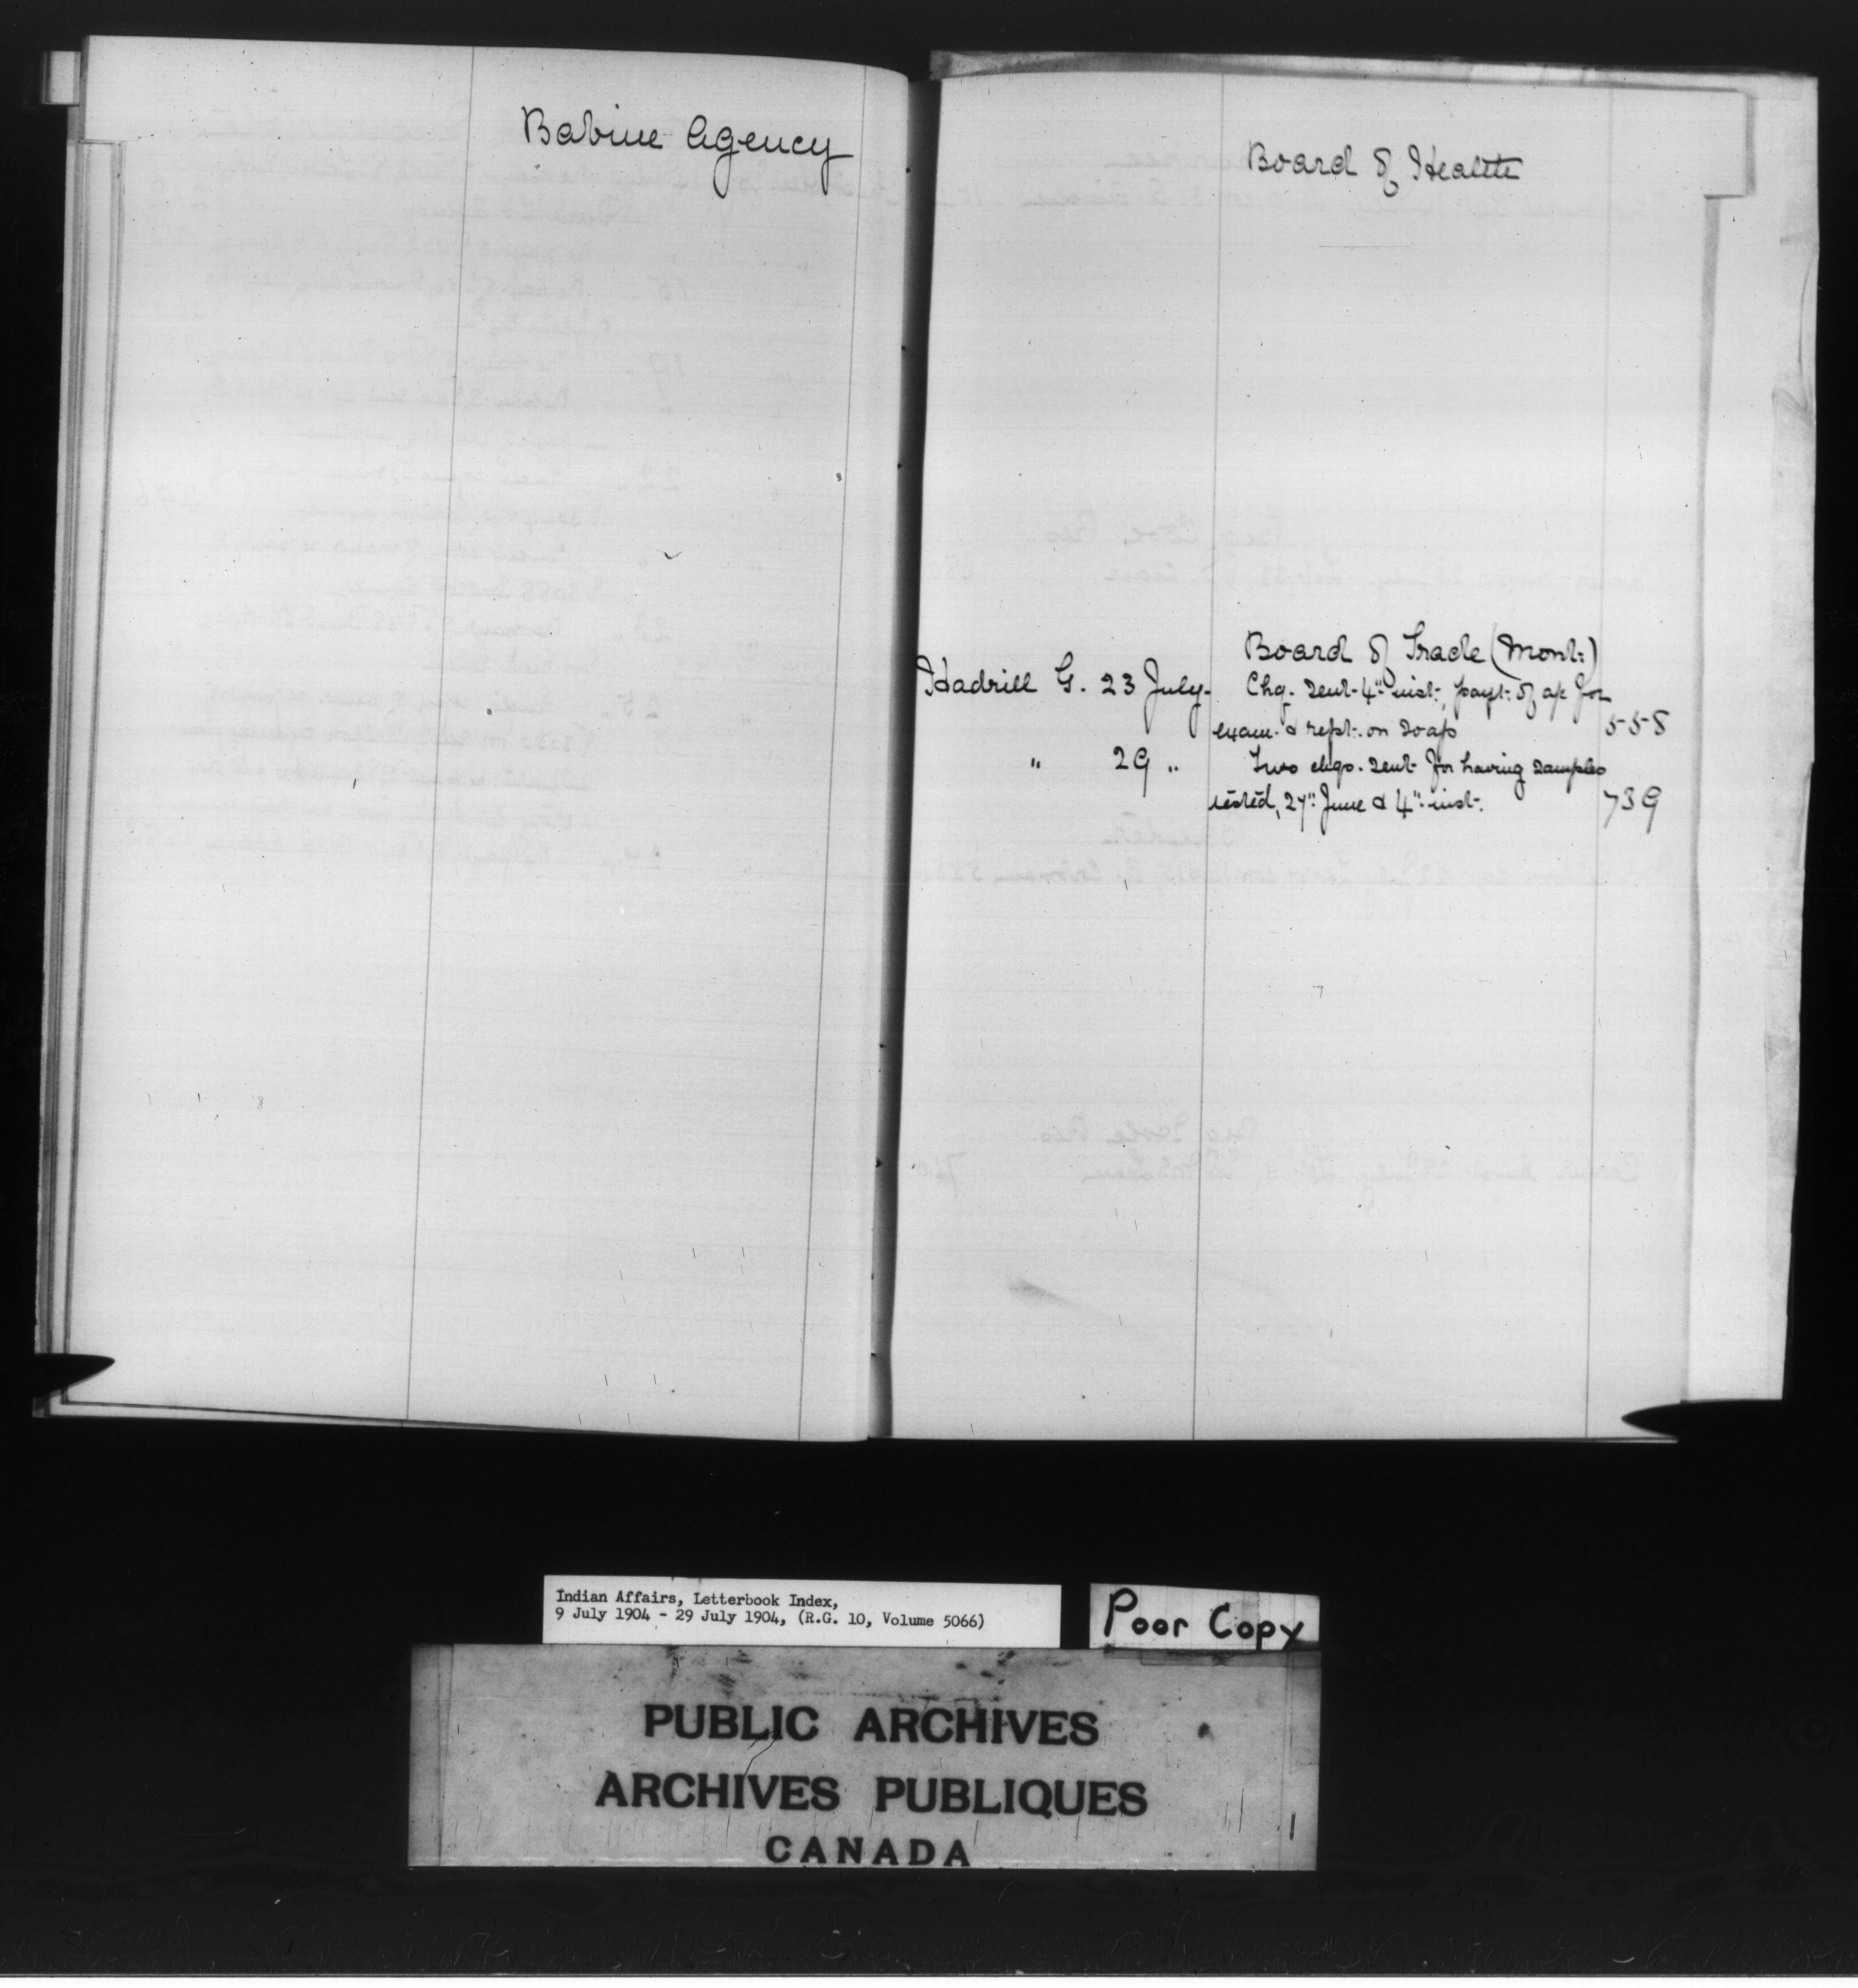 Babine Agency
Board of Health
Board of Trade (Mont:)
Hadrill G. 23 July. Chq. sent 4" inst, payt: of a/c for
exam. & rept. on soap 558
" 29 " Two chqs. sent for having samples
tested, 27": June & 4": inst. 739
Indian Affairs, Letterbook Index,
9 July 1904 - 29 July 1904, (R.G. 10, Volume 5066)
Poor Copy
PUBLIC ARCHIVES
ARCHIVES PUBLIQUES
CANADA